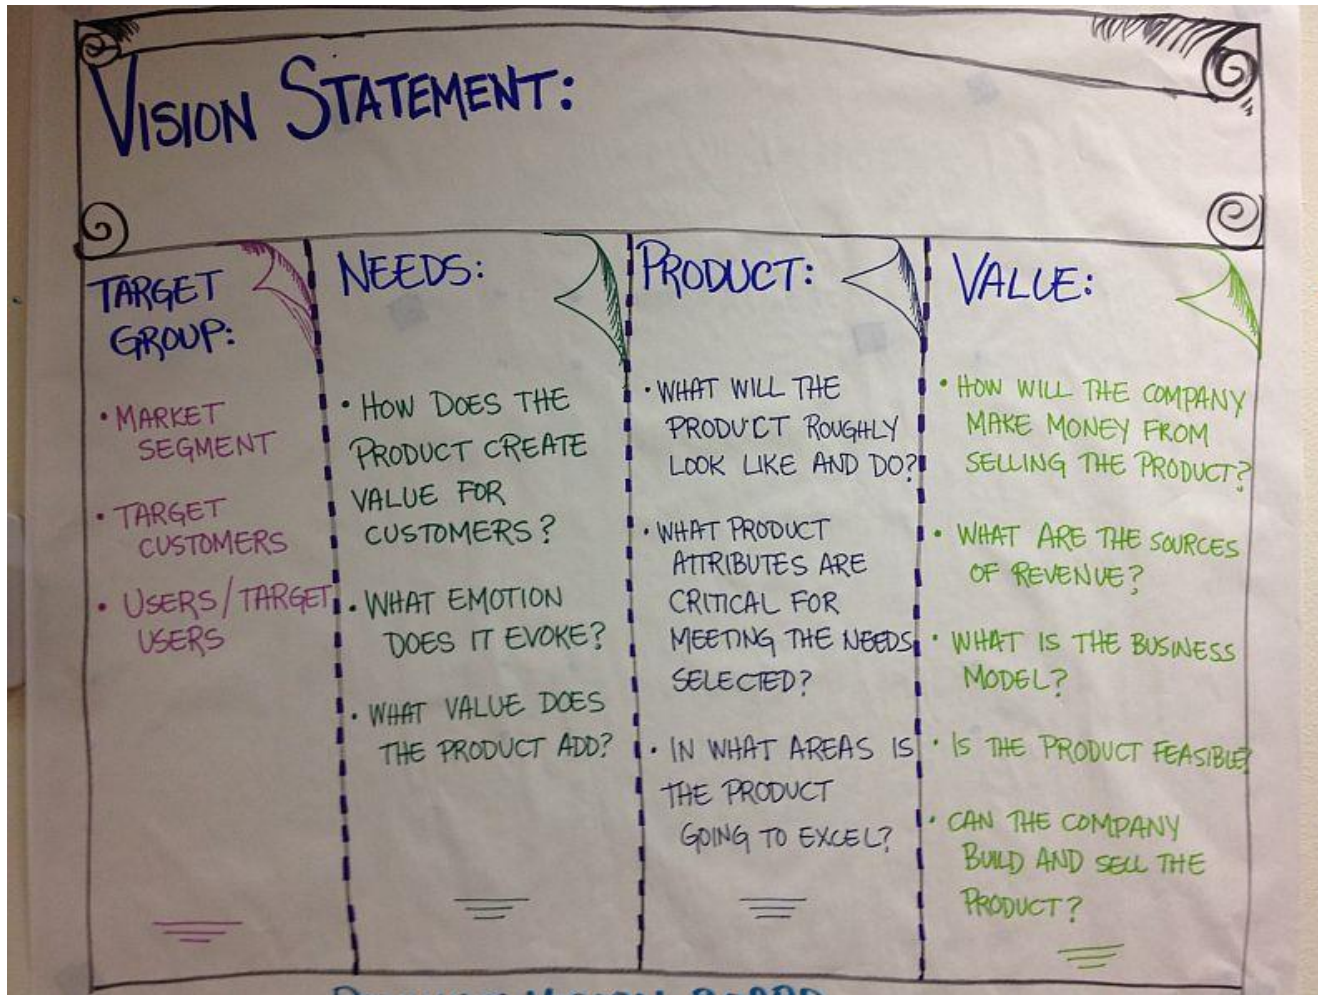 VISION STATEMENT:
TARGET
GROUP:
• MARKET
SEGMENT
• TARGET
CUSTOMERS
• USERS/TARGET
USERS
NEEDS:
• HOW DOES THE
PRODUCT CREATE
VALUE FOR
CUSTOMERS?
• WHAT EMOTION
DOES IT EVOKE?
• WHAT VALUE DOES
THE PRODUCT ADD?
PRODUCT:
• WHAT WILL THE
PRODUCT ROUGHLY
LOOK LIKE AND DO?
• WHAT PRODUCT
ATTRIBUTES ARE
CRITICAL FOR
MEETING THE NEEDS
SELECTED?
• IN WHAT AREAS IS
THE PRODUCT
GOING TO EXCEL?
VALUE:
• HOW WILL THE COMPANY
MAKE MONEY FROM
SELLING THE PRODUCT?
• WHAT ARE THE SOURCES
OF REVENUE?
• WHAT IS THE BUSINESS
MODEL?
• IS THE PRODUCT FEASIBLE?
• CAN THE COMPANY
BUILD AND SELL THE
PRODUCT?